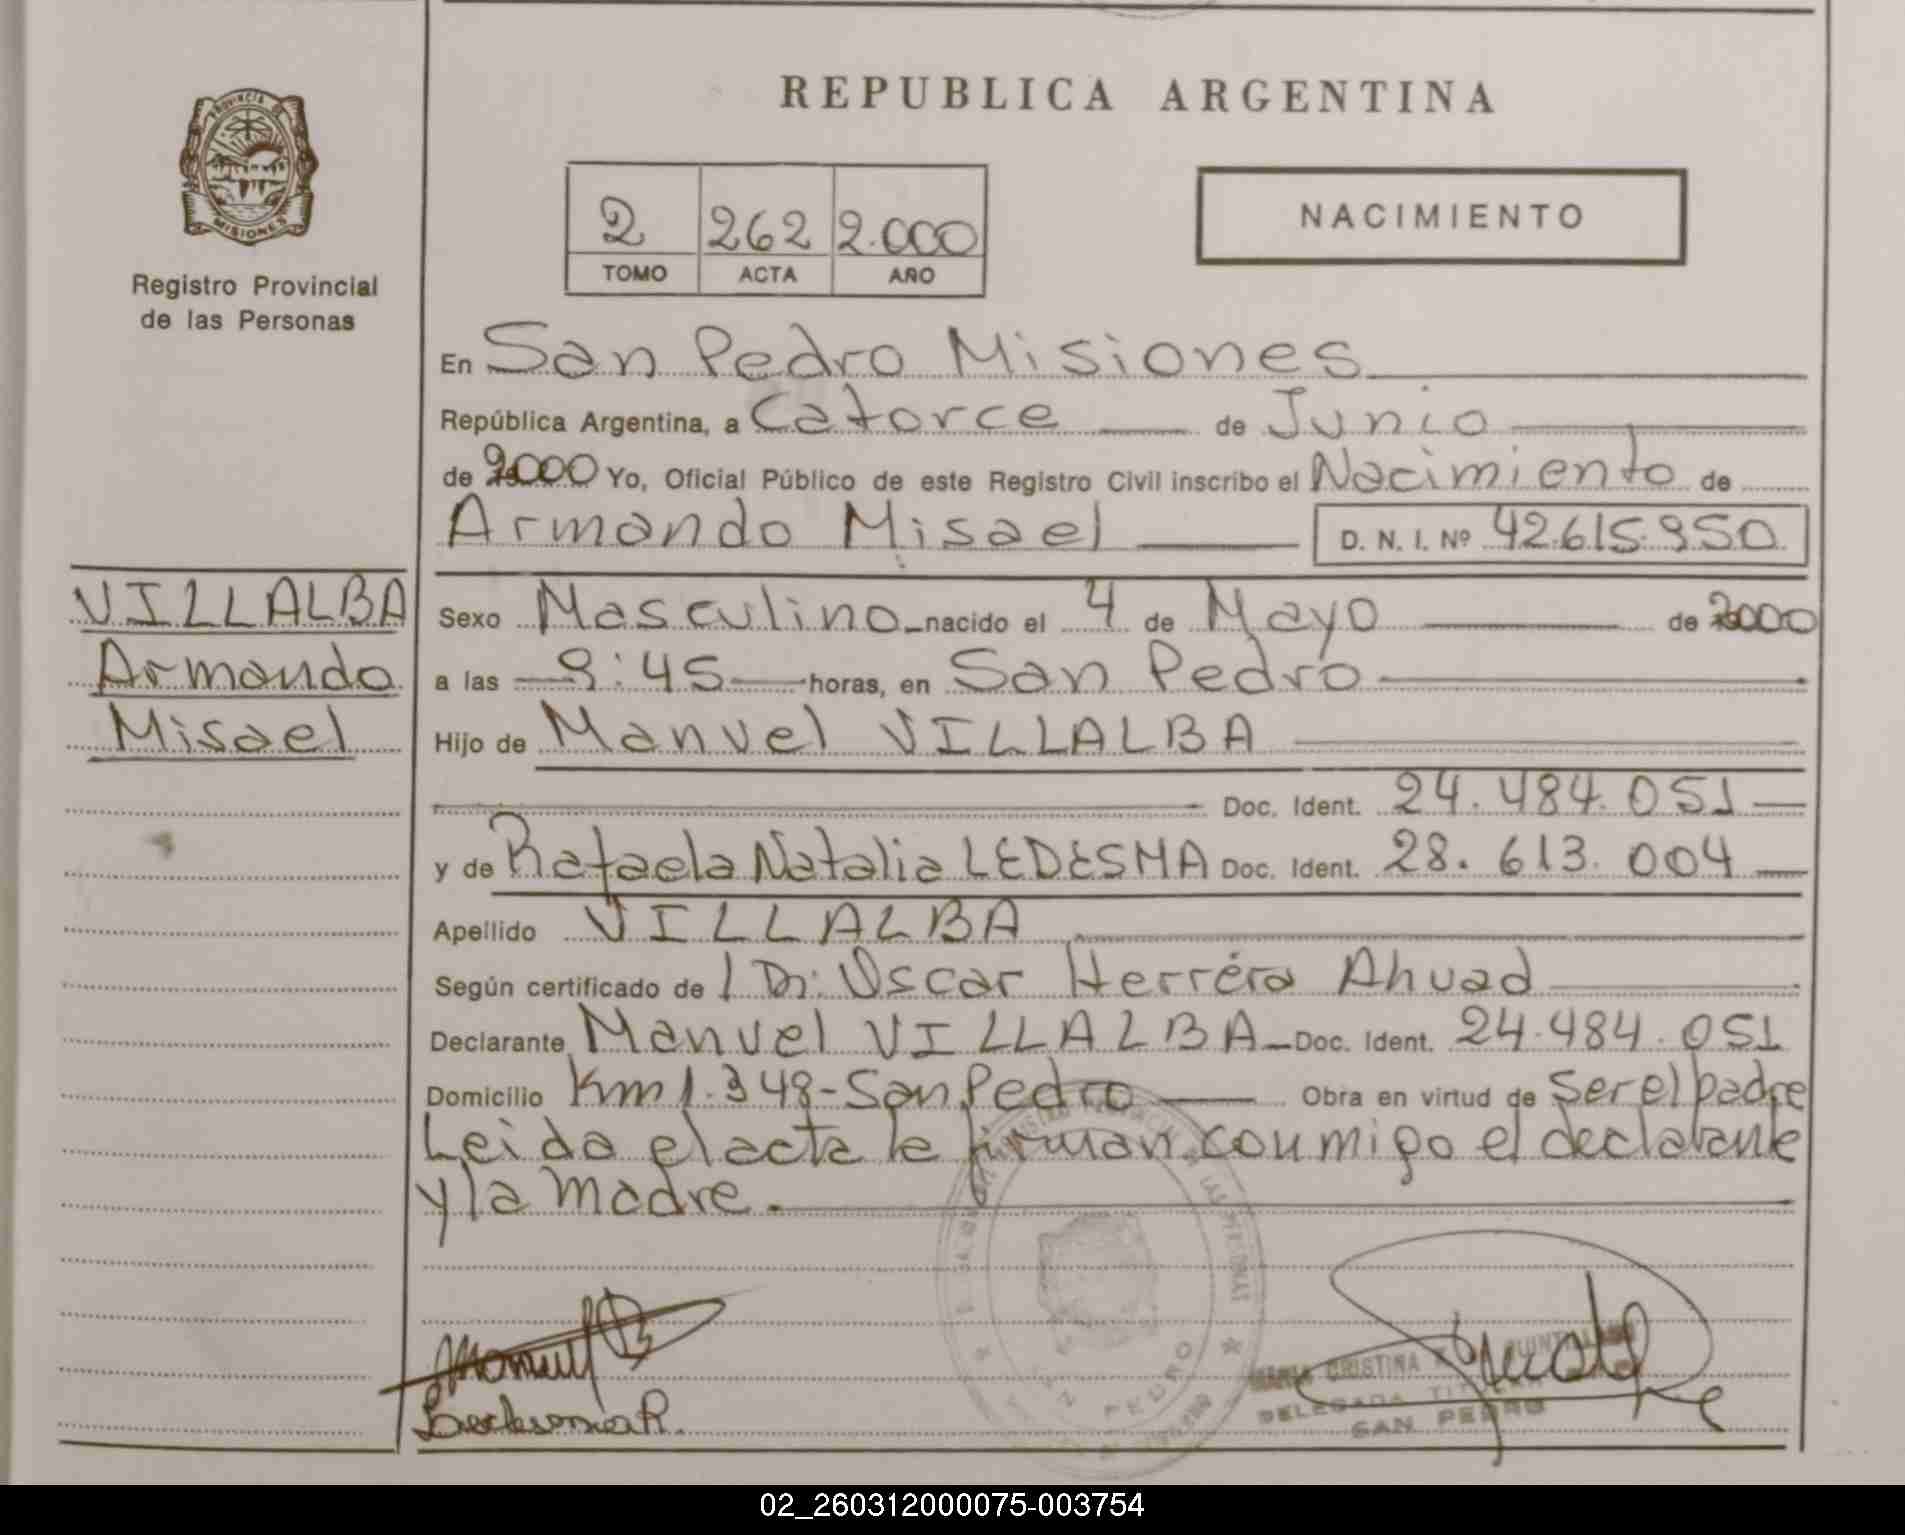 REPUBLICA ARGENTINA
PROVINCIA DE
MISIONES
Registro Provincial
de las Personas
2 262 2.000
TOMO ACTA AÑO
NACIMIENTO
En San Pedro Misiones
República Argentina, a Catorce de Junio
de 2000 Yo, Oficial Público de este Registro Civil inscribo el Nacimiento de
Armando Misael D. N. I. Nº 42.615.950
VILLALBA
Armando
Misael
Sexo Masculino nacido el 4 de Mayo de 2000
a las 9:45 horas, en San Pedro
Hijo de Manuel VILLALBA
Doc. Ident. 24.484.051
y de Rafaela Natalia LEDESMA Doc. Ident. 28.613.004
Apellido VILLALBA
Según certificado de l Dr: Oscar Herrera Ahuad
Declarante Manuel VILLALBA Doc. Ident. 24.484.051
Domicilio Km 1.348-San Pedro Obra en virtud de Ser el padre
Leida el acta la firman conmigo el declarante
y la madre.
CRISTINA
DELEGADA TITULAR
SAN PEDRO
02_260312000075-003754